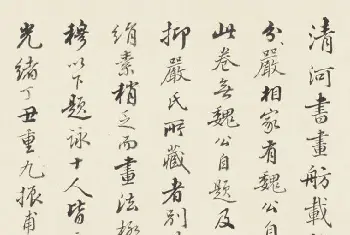 清河書畫舫載
分嚴相家有魏公
此卷無魏公自題及
抑嚴氏所藏者別
絹素稍乏而畫法極
穆以下題詠十人皆
光緒丁丑重九振甫